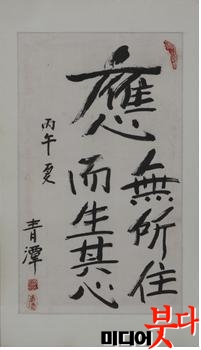 應無所住
而生其心
丙午夏
青潭
미디어
붓다